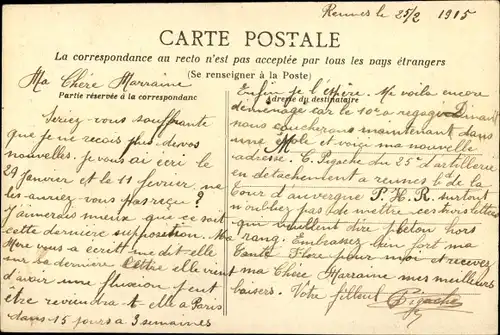 Rennes le 25/2 1915
CARTE POSTALE
La correspondance au recto n'est pas acceptée par tous les pays étrangers
(Se renseigner à la Poste)
Ma Chère Marraine
Partie réservée à la correspondanc
Seriez-vous souffrante
que je ne recois plus de vos
nouvelles. je vous ai ecri le
29 janvier et le 11 fevrier ne
les auriez vous pas reçu ?
J'aimerais mieux que ce soit
cette dernière supposition. Ma
Mère vous a ecrit me dit-elle
sur sa derniere lettre elle vient
d'avoir une fluxion peut
être reviendra-t-elle a Paris
dans 15 jours a 3 semaines
Enfin je l'espère. Me voila encore
Adresse du destinataire
déménagé car le 10e a regagné Dinant
nous coucherons maintenant dans
une école et voici ma nouvelle
adresse. C. Pigache du 25e d'artillerie
en detachement a rennes bd de la
Tour d'auvergne P.H.R. surtout
n'oubliez pas de mettre ces trois lettres
qui veullent dire peloton hors
rang. Embrassez bien fort ma
Tante Flore pour moi et recevez
ma Chère Marraine mes meilleurs
baisers. Votre filleul Pigache